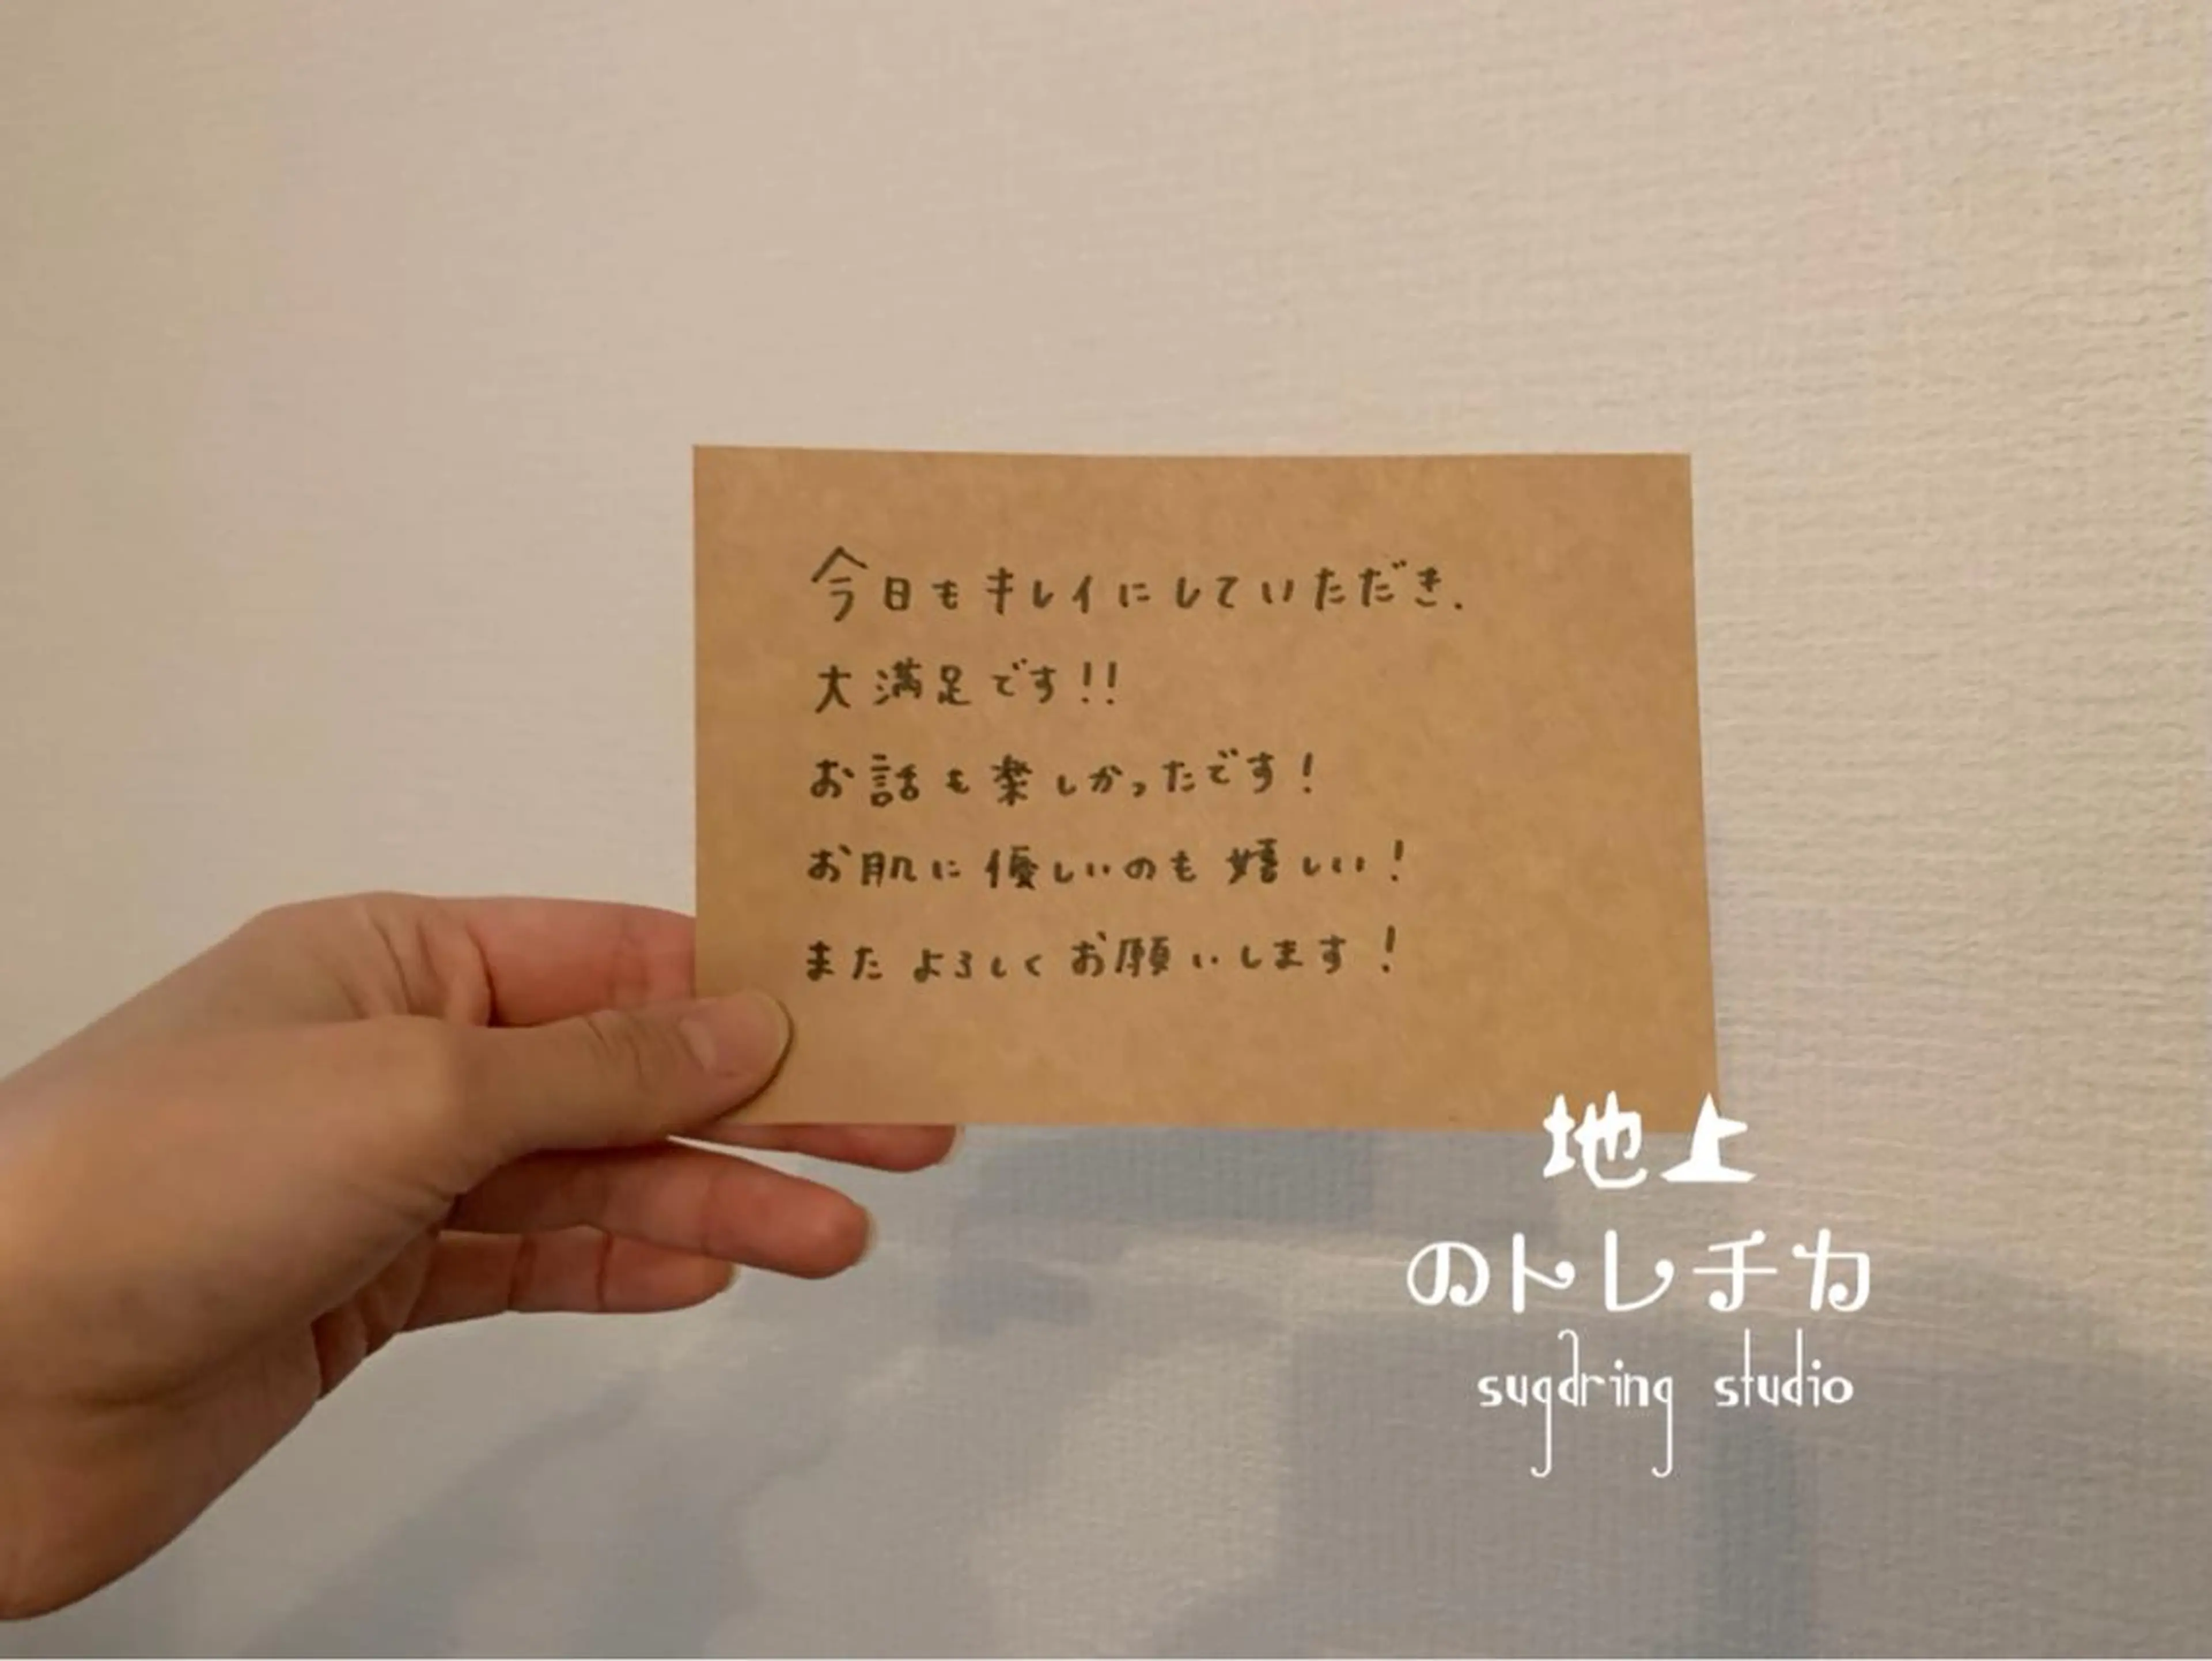 今日もキレイにしていただき.
大満足です!!
お話も楽しかったです!
お肌に優しいのも嬉しい!
またよろしくお願いします!
地上
のトレチカ
sugaring studio